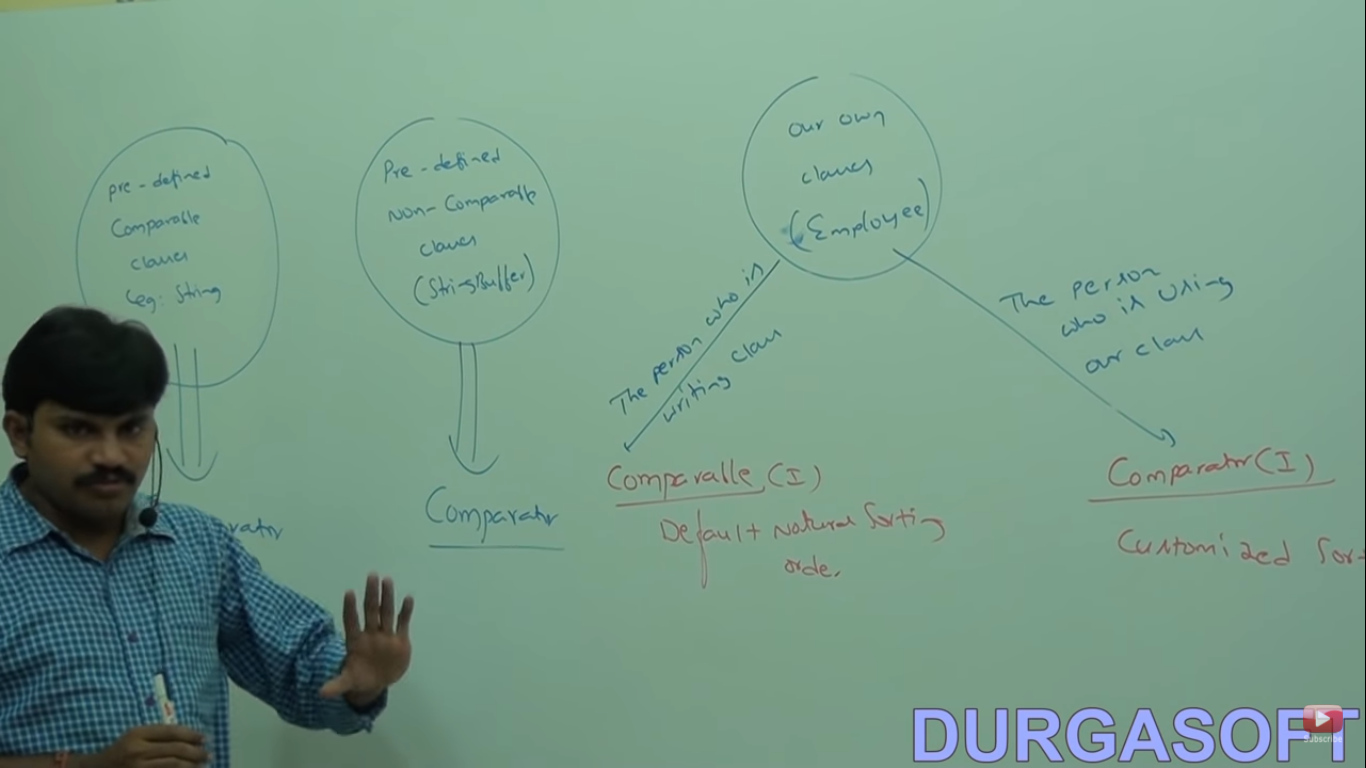 pre-defined
Comparable
classes
(eg: String
Pre-defined
Non-Comparable
classes
(StringBuffer)
Comparator
our own
classes
(Employee)
The person who is
writing class
Comparable (I)
Default Natural Sorting
order
The person
who is using
our class
Comparator (I)
Customized Sor
DURGASOFT
Subscribe